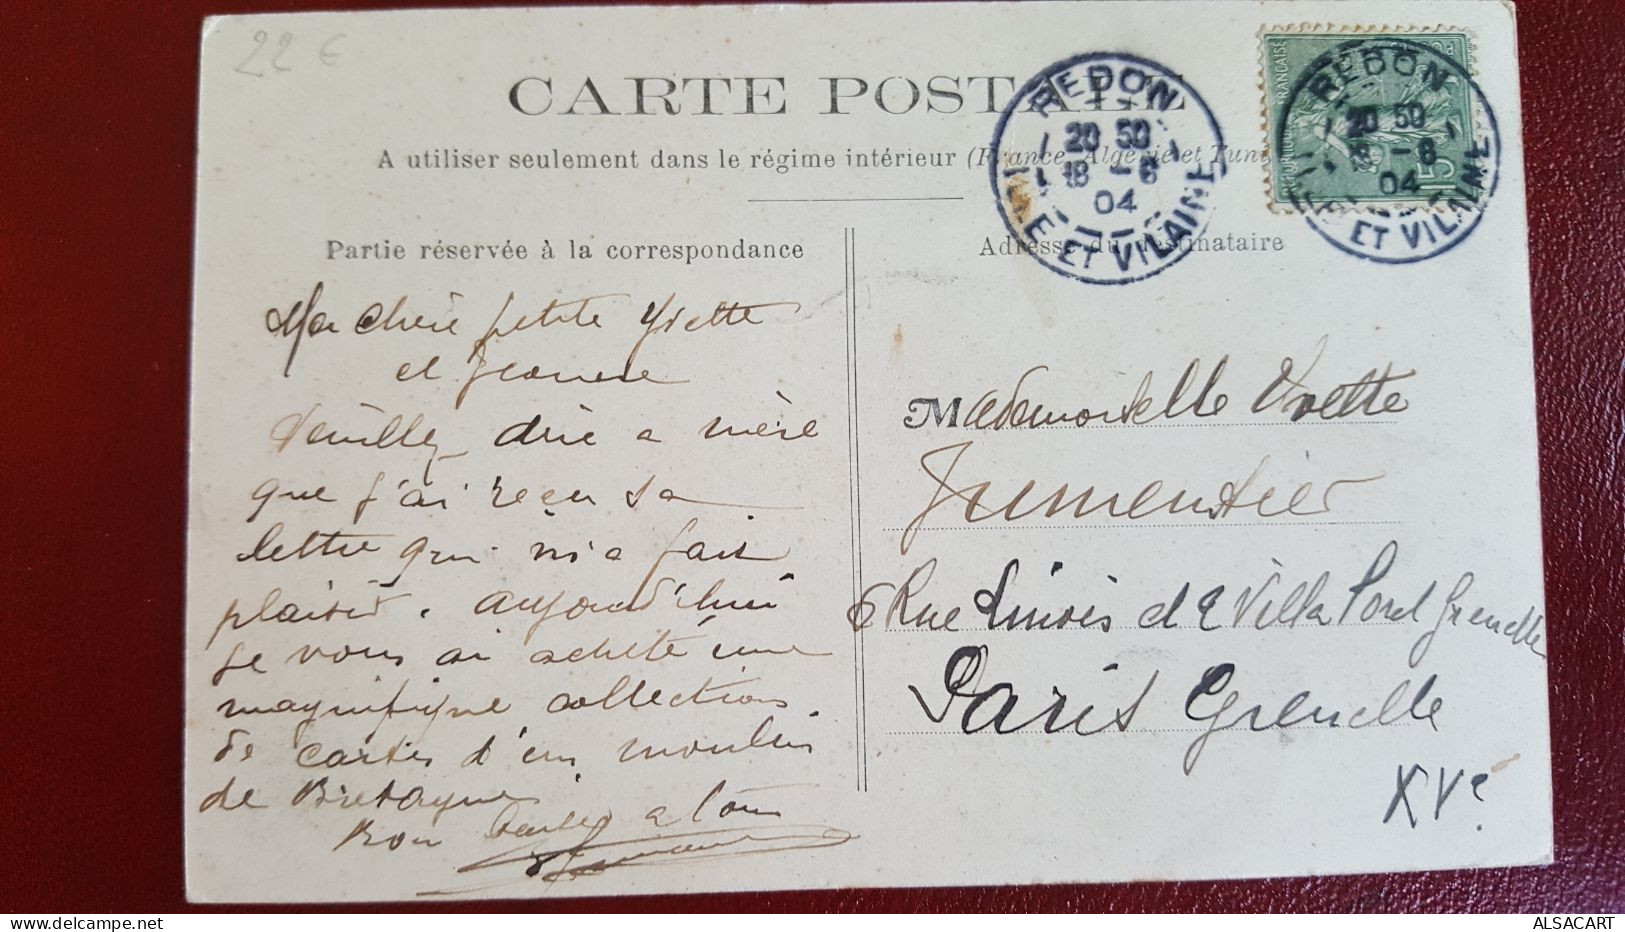 22 €
CARTE POSTALE
A utiliser seulement dans le régime intérieur (France, Algérie et Tuni
REDON
20 50
18 - 6
04
ILLE ET VILAINE
REDON
20 50
18 - 6
04
ILLE ET VILAINE
FRANCAISE
15
Partie réservée à la correspondance
Adresse du destinataire
Ma chère petite Yvette
et Jeanne
Veuillez dire a mère
que j'ai reçu sa
lettre qui m'a fait
plaisir. aujourd'hui
je vous ai acheté une
magnifique collection
de cartes d'un moulin
de Bretagne
Bon a tous
Mademoiselle Yvette
Jumentier
6 Rue Linois et 2 Villa Pord Grenelle
Paris Grenelle
XVe
ALSACART